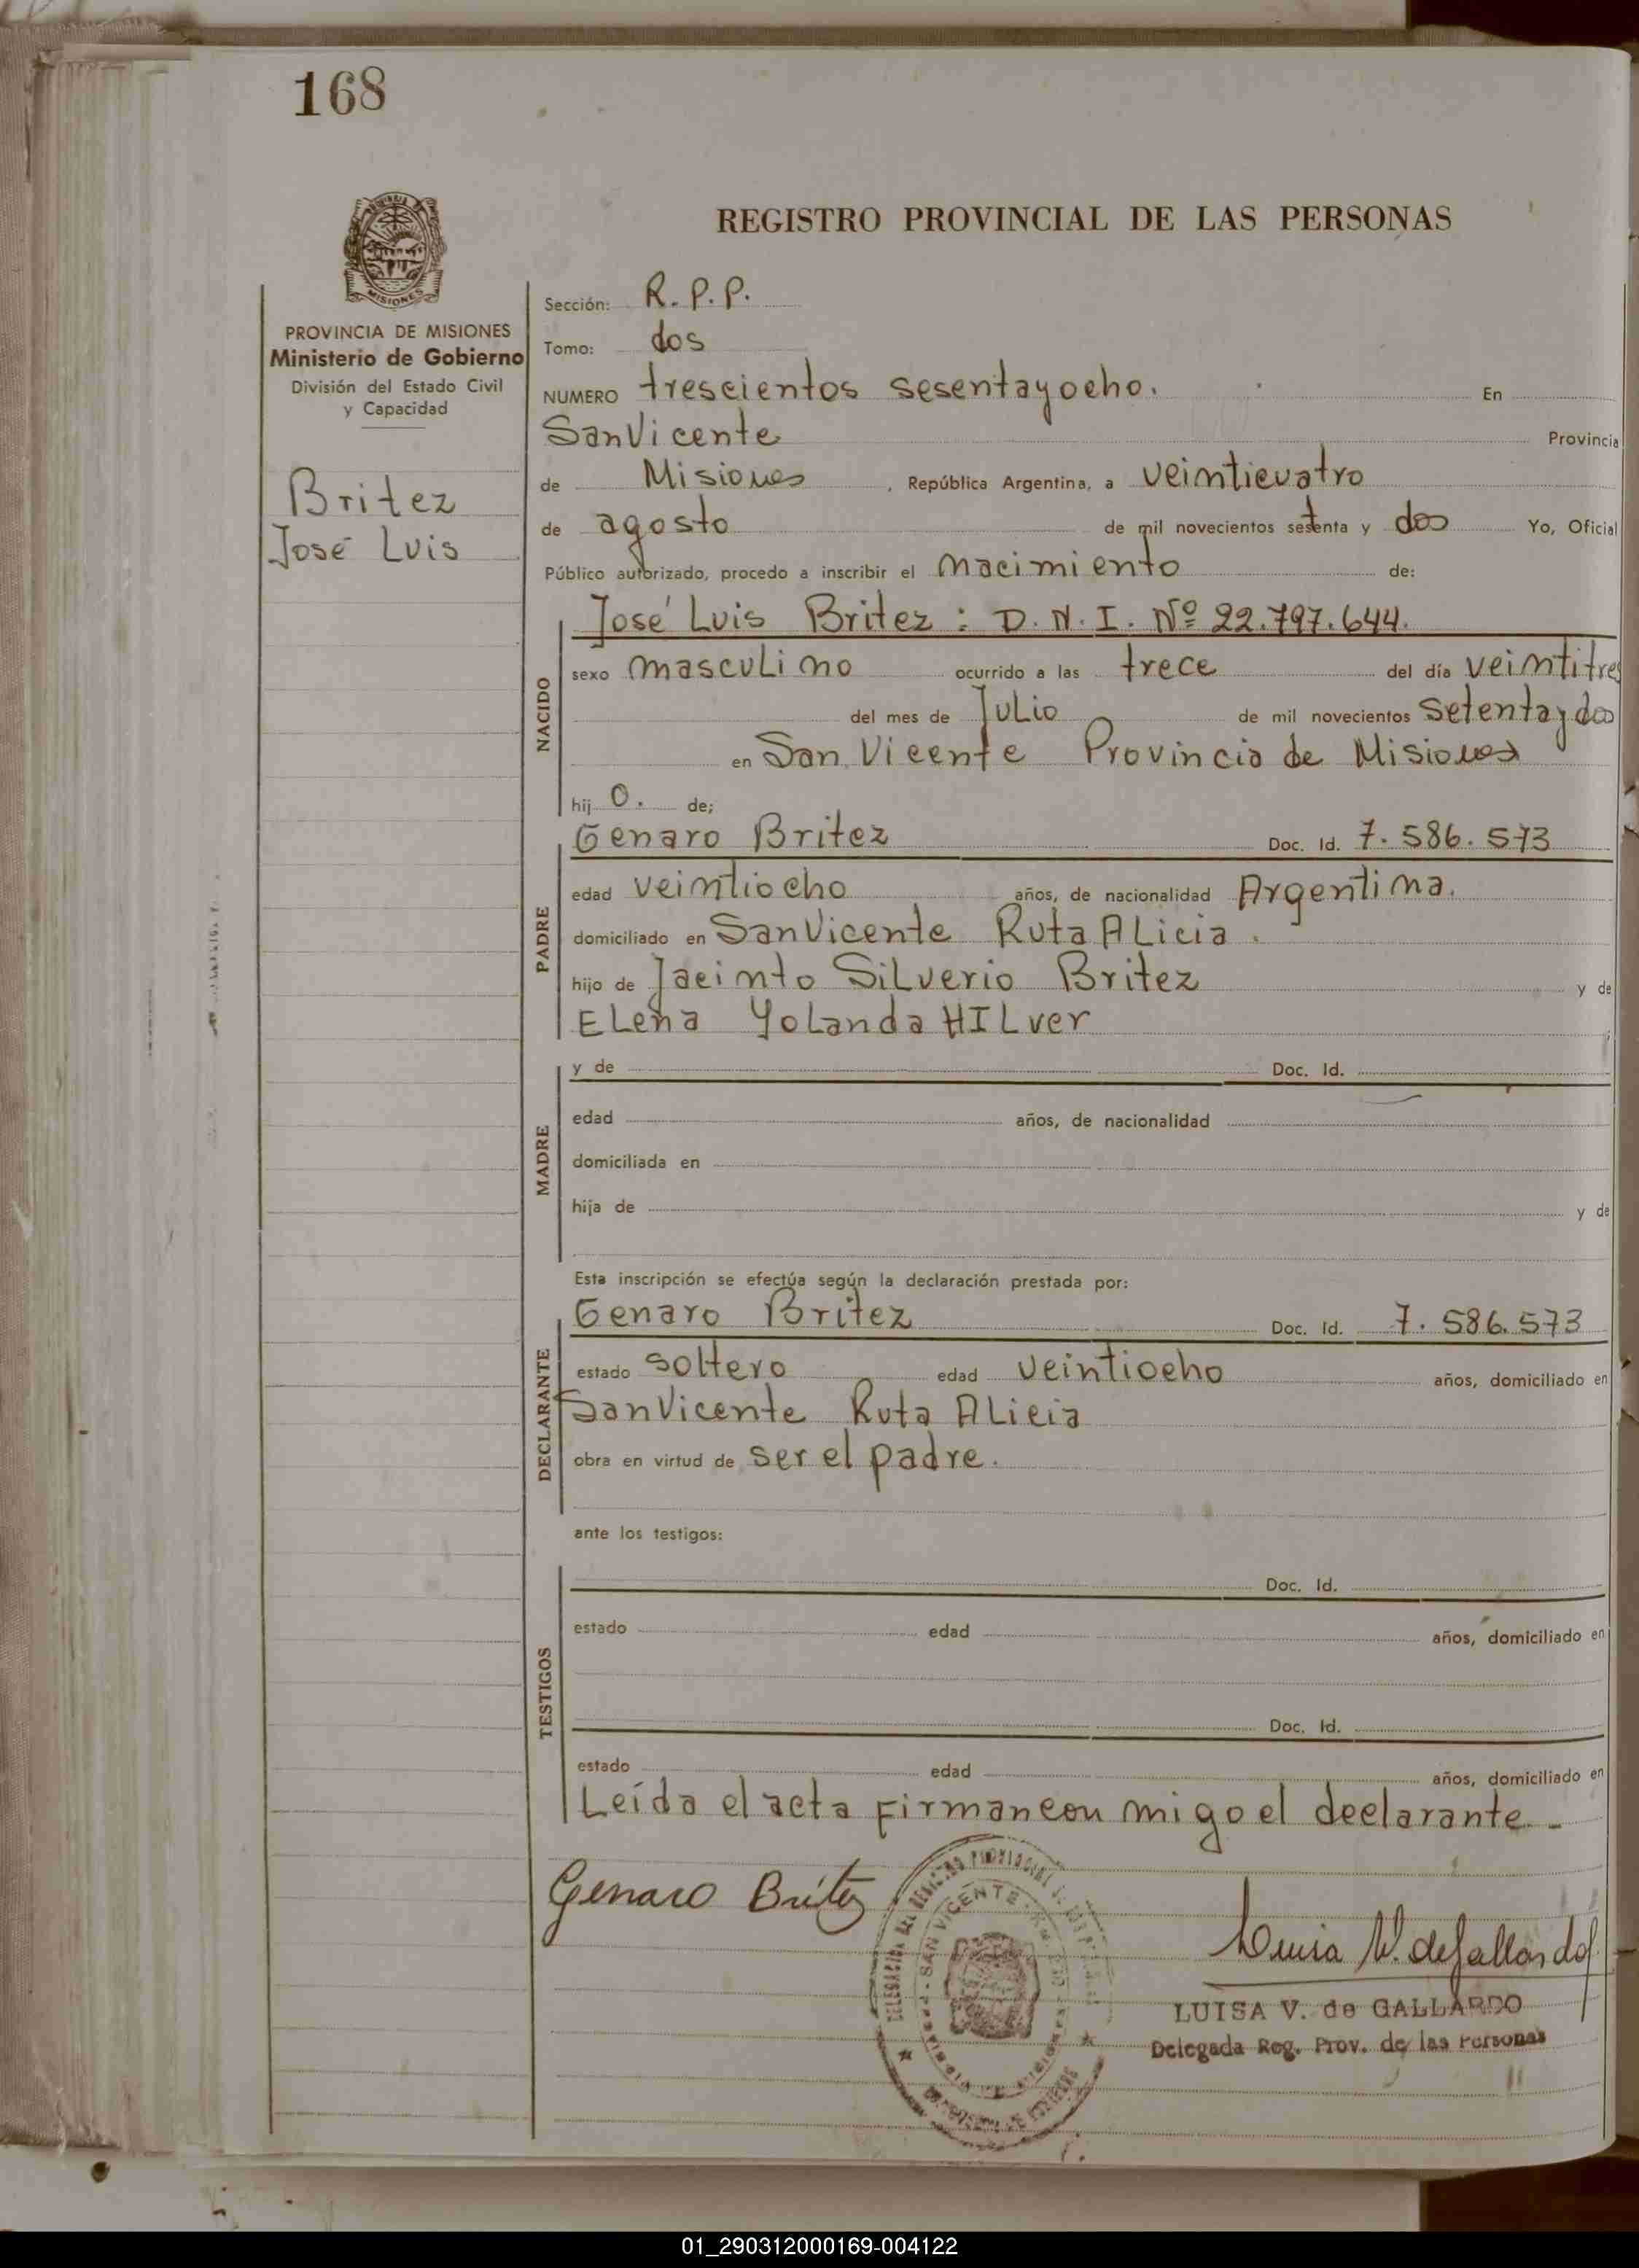 168
REGISTRO PROVINCIAL DE LAS PERSONAS
MISIONES
PROVINCIA DE MISIONES
Ministerio de Gobierno
División del Estado Civil
y Capacidad
Britez
José Luis
Sección: R.P.P.
Tomo: dos
NUMERO trescientos sesentayocho. En
San Vicente Provincia
de Misiones, República Argentina, a veinticuatro
de agosto de mil novecientos setenta y dos Yo, Oficial
Público autorizado, procedo a inscribir el nacimiento de:
NACIDO
José Luis Britez : D.N.I. Nº 22.797.644.
sexo masculino ocurrido a las trece del día veintitres
del mes de Julio de mil novecientos setentaydos
en San Vicente Provincia de Misiones
hij o. de;
PADRE
Genaro Britez Doc. Id. 7.586.573
edad veintiocho años, de nacionalidad Argentina.
domiciliado en San Vicente Ruta Alicia.
hijo de Jacinto Silverio Britez y de
Elena Yolanda HILver
MADRE
y de Doc. Id.
edad años, de nacionalidad
domiciliada en
hija de y de
Esta inscripción se efectúa según la declaración prestada por:
DECLARANTE
Genaro Britez Doc. Id. 7.586.573
estado soltero edad veintiocho años, domiciliado en
San Vicente Ruta Alicia
obra en virtud de ser el padre.
ante los testigos:
TESTIGOS
Doc. Id.
estado edad años, domiciliado en
Doc. Id.
estado edad años, domiciliado en
Leída el acta firman con migo el declarante.-
Genaro Britez
SAN VICENTE
Luisa V. de Gallardo
LUISA V. de GALLARDO
Delegada Reg. Prov. de las Personas
01_290312000169-004122